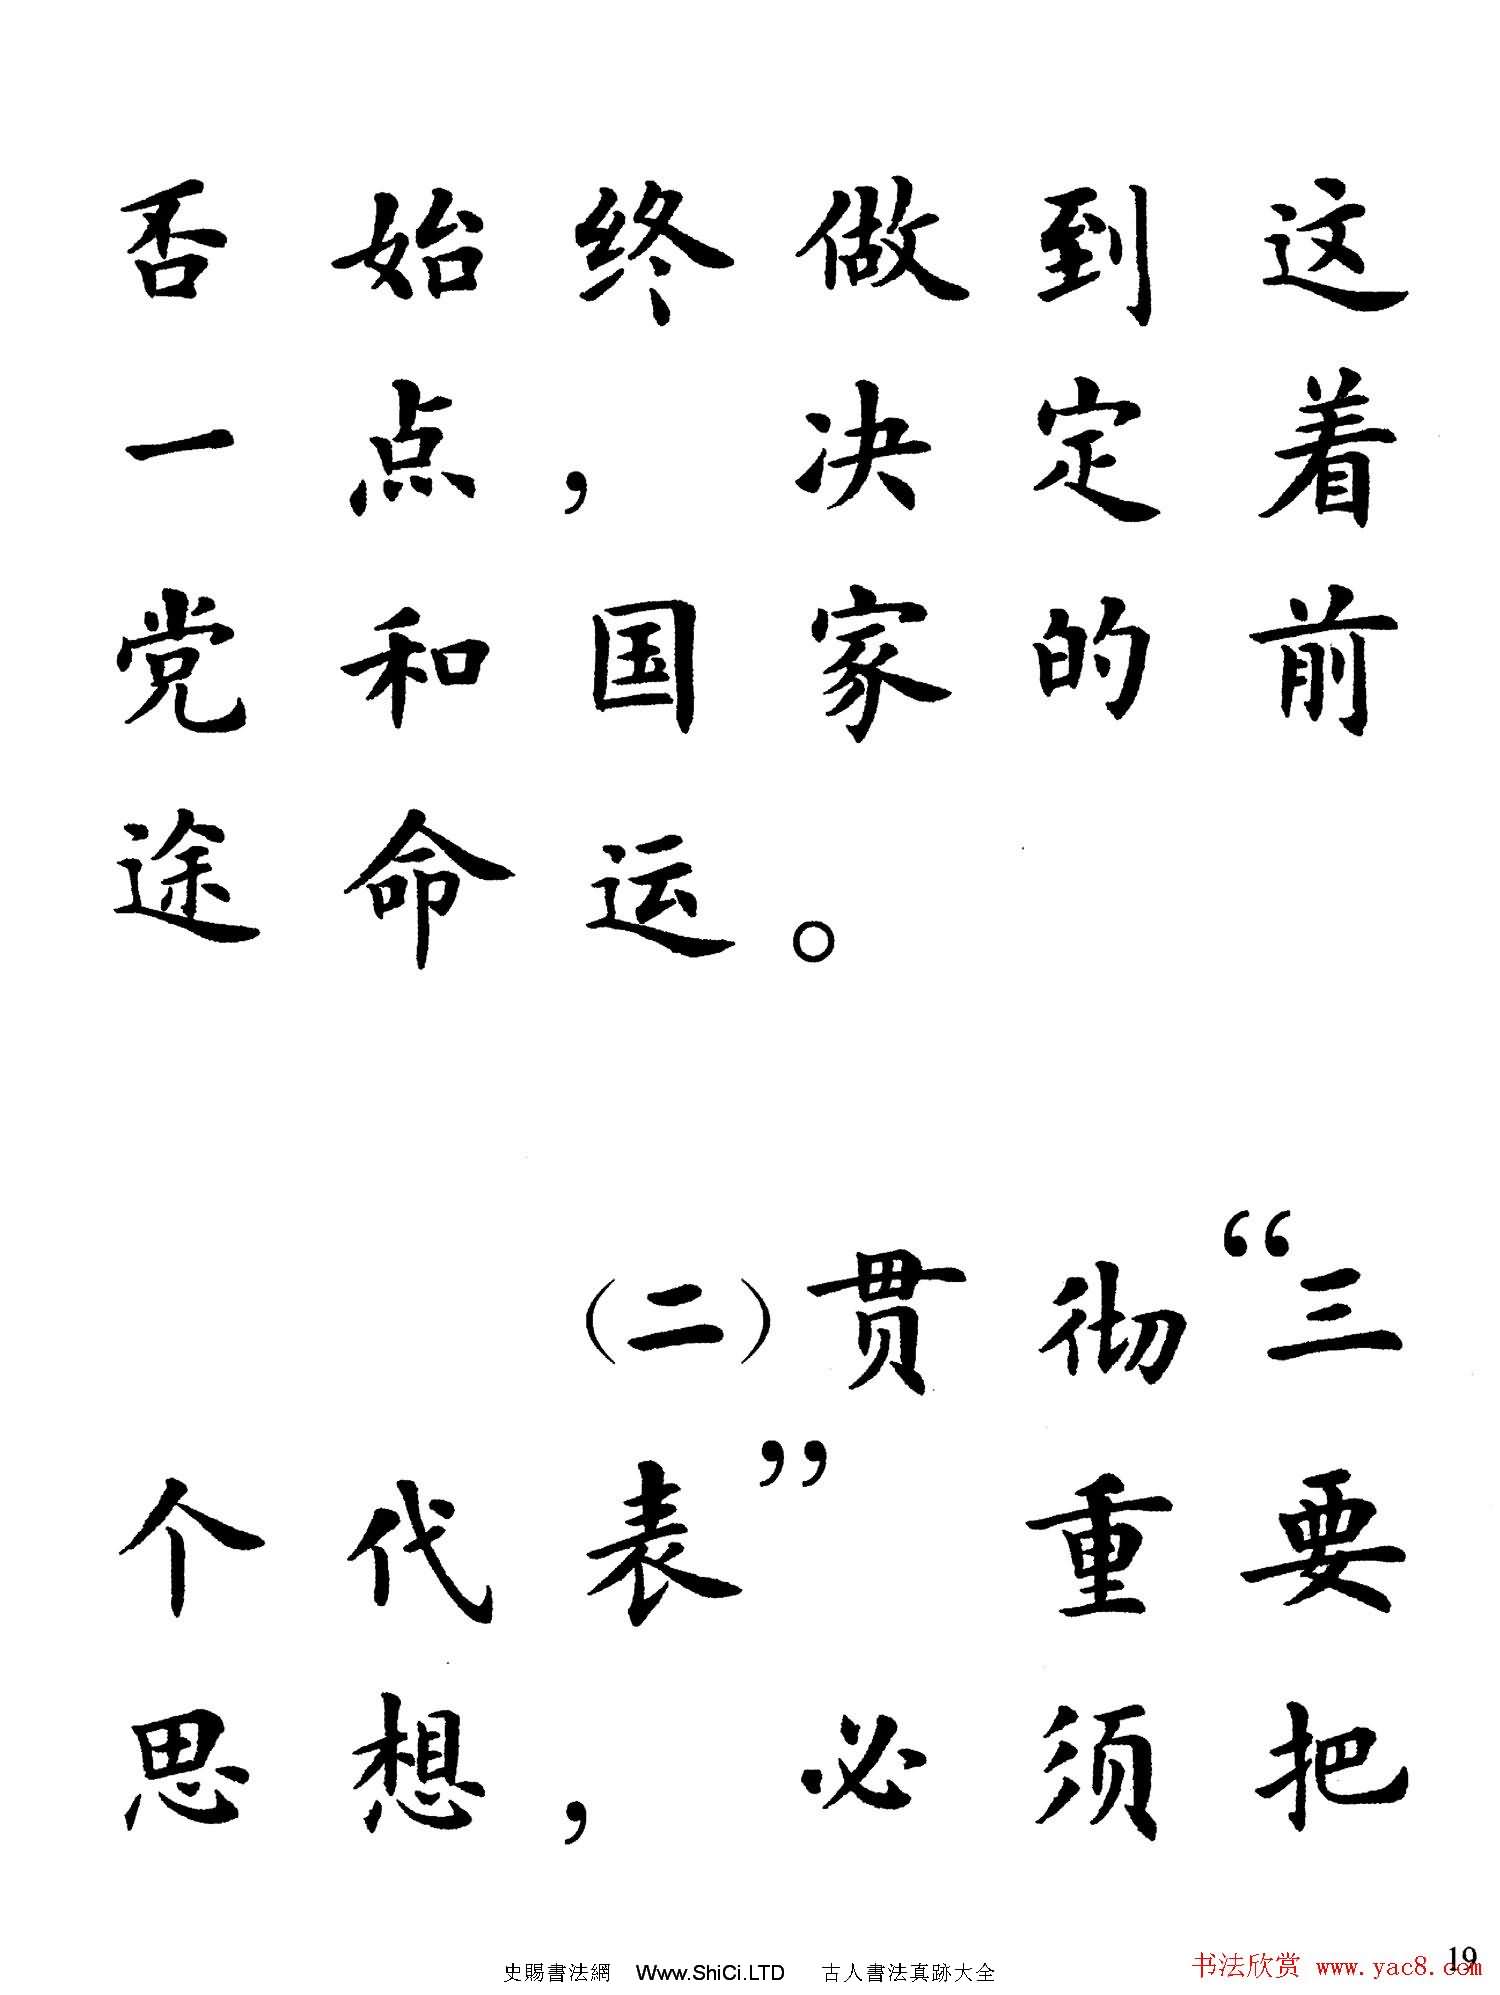 否始终做到这
一点，决定着
党和国家的前
途命运。
（二）贯彻“三
个代表”重要
思想，必须把
史賜書法網 Www.ShiCi.LTD 古人書法真跡大全
书法欣赏 www.yac8.com
19